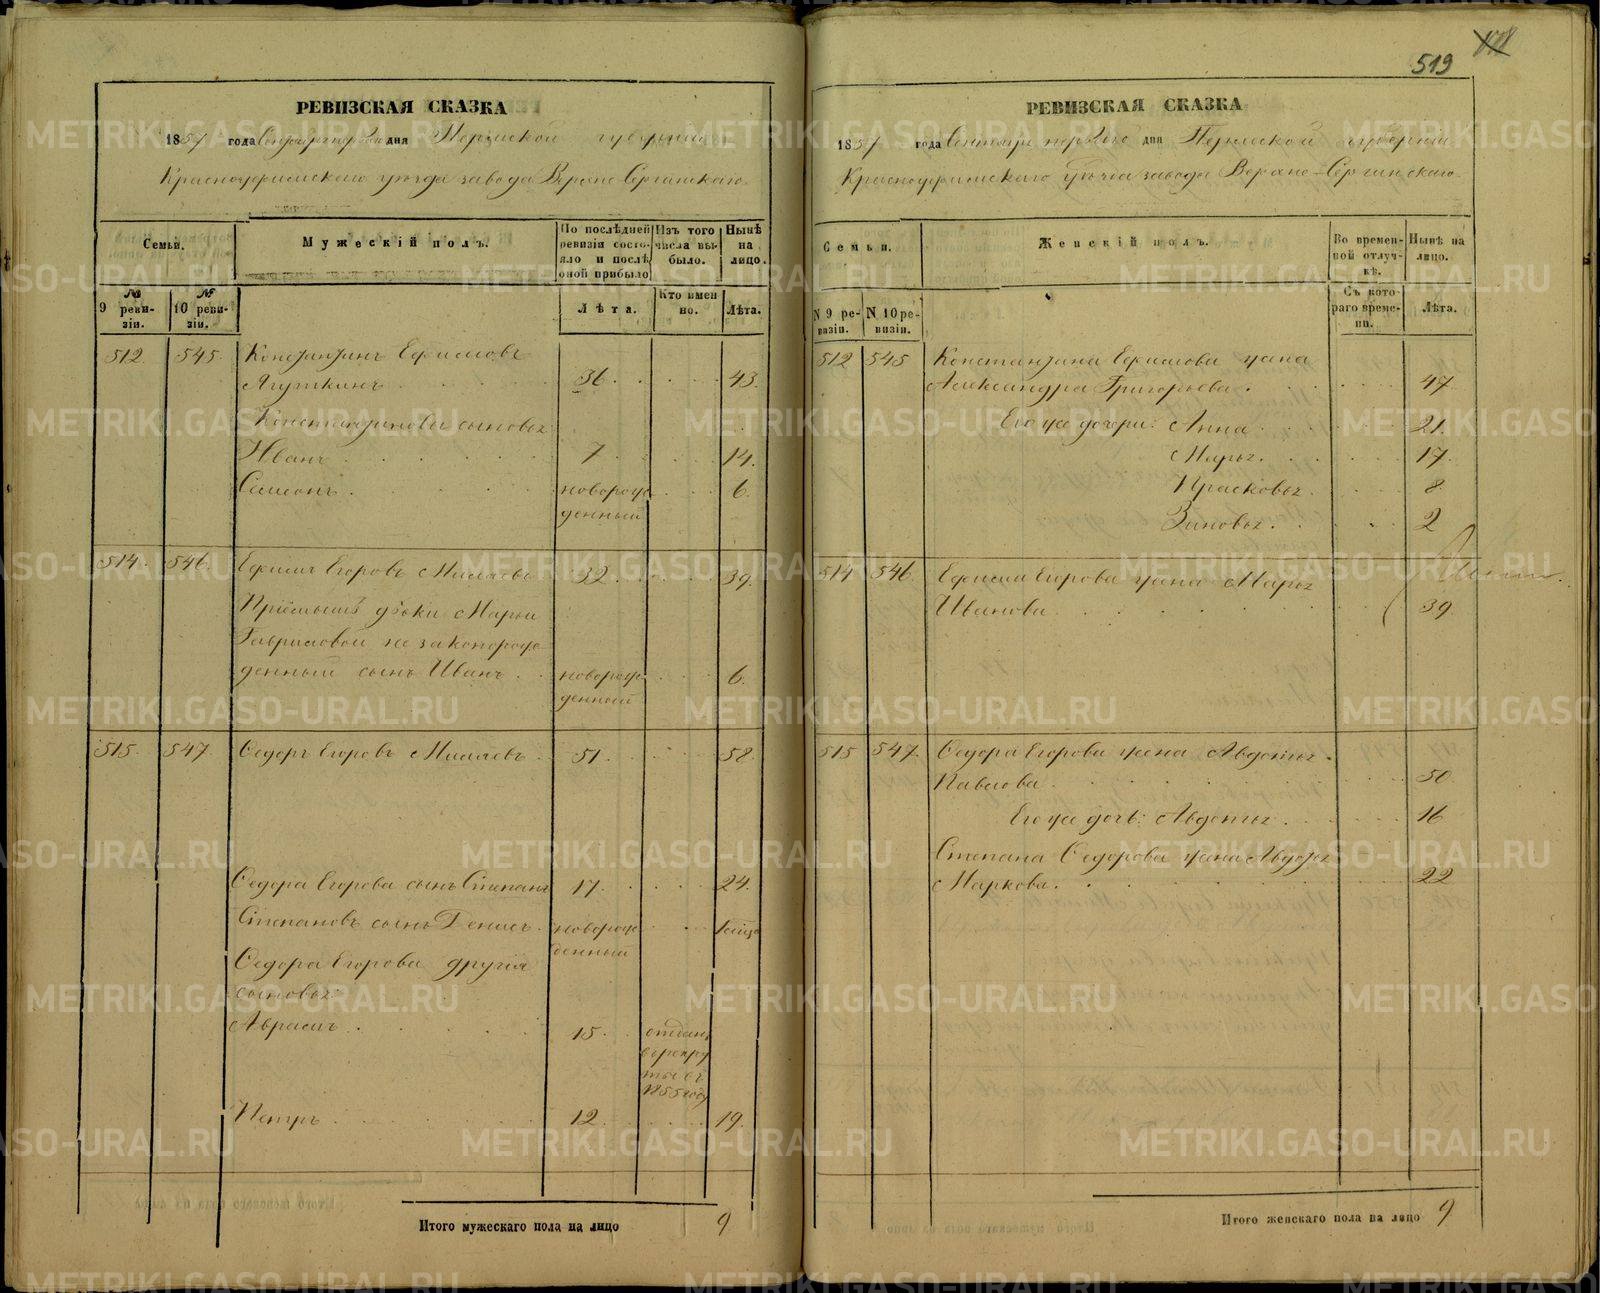 519
РЕВИЗСКАЯ СКАЗКА
1857 года Сентября первого дня Пермской губернии
Красноуфимскаго уѣзда завода Верхне-Сергинскаго
Семьи.
Мужескій полъ.
По послѣдней ревизіи состояло и послѣ оной прибыло
Изъ того числа выбыло.
Нынѣ на лицо.
№ 9 ревизіи.
№ 10 ревизіи.
Лѣта.
Кто именно.
Лѣта.
512 545 Константинъ Ефимовъ
Ягуткинъ 36 43
Константиновы сыновья
Иванъ 7 14
Самсонъ новорожденный 6
514 546 Ефимъ Егоровъ Миляевъ 32 39
Пріёмышъ дѣвки Марьи
Гавриловой незаконорож
денный сынъ Иванъ новорожденный 6
515 547 Ѳедоръ Егоровъ Миляевъ 51 58
Ѳедора Егорова сынъ Степанъ 17 24
Степановъ сынъ Денисъ новорожденный
Ѳедора Егорова другія
сыновья
Аврамъ 15 отданъ в рекруты въ 1855 году
Петръ 12 19
Итого мужескаго пола на лицо 9
РЕВИЗСКАЯ СКАЗКА
1857 года Сентября первого дня Пермской губерніи
Красноуфимскаго уѣзда завода Верхне-Сергинскаго
Семьи.
Женскій полъ.
Во временной отлучкѣ.
Нынѣ на лицо.
N 9 ревизіи.
N 10 ревизіи.
Съ котораго времени.
Лѣта.
512 545 Константина Ефимова жена
Александра Григорьева 47
Его же дочери: Анна 21
Марья 17
Прасковья 8
Зиновья 2
514 546 Ефима Егорова жена Марья
Иванова 39
515 547 Ѳедора Егорова жена Авдотья
Павлова 50
Его же дочь: Авдотья 16
Степана Ѳедорова жена Авдотья
Маркова 22
Итого женскаго пола на лицо 9
METRIKI.GASO-URAL.RU